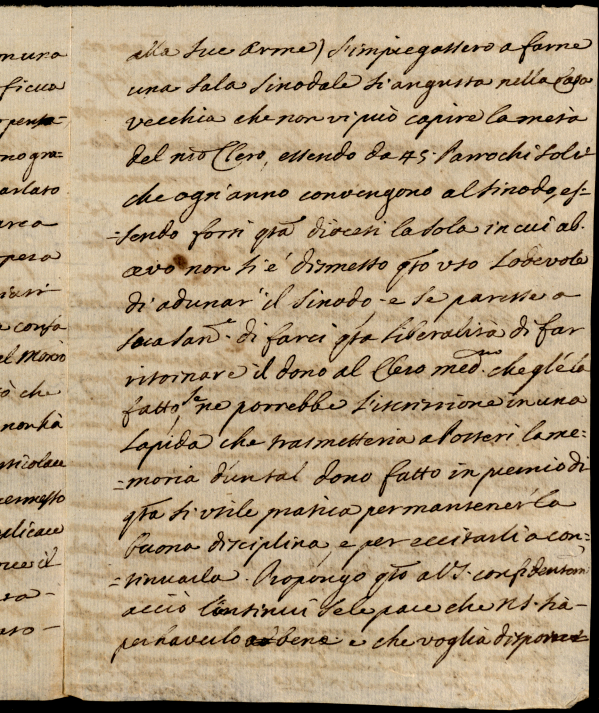 mura
ficua
nogra=
arlato
pera
che
non hà
ticolare
alla sue arme) s'impiegassero a farne
una sala sinodale si angusta nella casa
vecchia che non vi può capire la metà
del nro Clero, essendo da 45. Parrochi soli
che ogn'anno convengono al sinodo, es=
=sendo forsi qta diocesi la sola in cui ab.
ævo non si è dismesso qto uso lodevole
di adunar' il sinodo. e se paresse a
sua Sante. di farci qta liberalità di far
ritornare il dono al Clero medmo. che gl'è la
fatto, se ne porrebbe l'iscrizzione in una
Lapida che trasmetteria a Posteri la me=
=moria d'un tal dono fatto in premio di
qta si utile pratica per mantener' la
buona disciplina, e per eccitarli a con=
=tinuarla. Propongo qto a VS. confidentem
acciò l'insinui se le pare che NS. hà=
per haverlo a bene e che voglia disporre